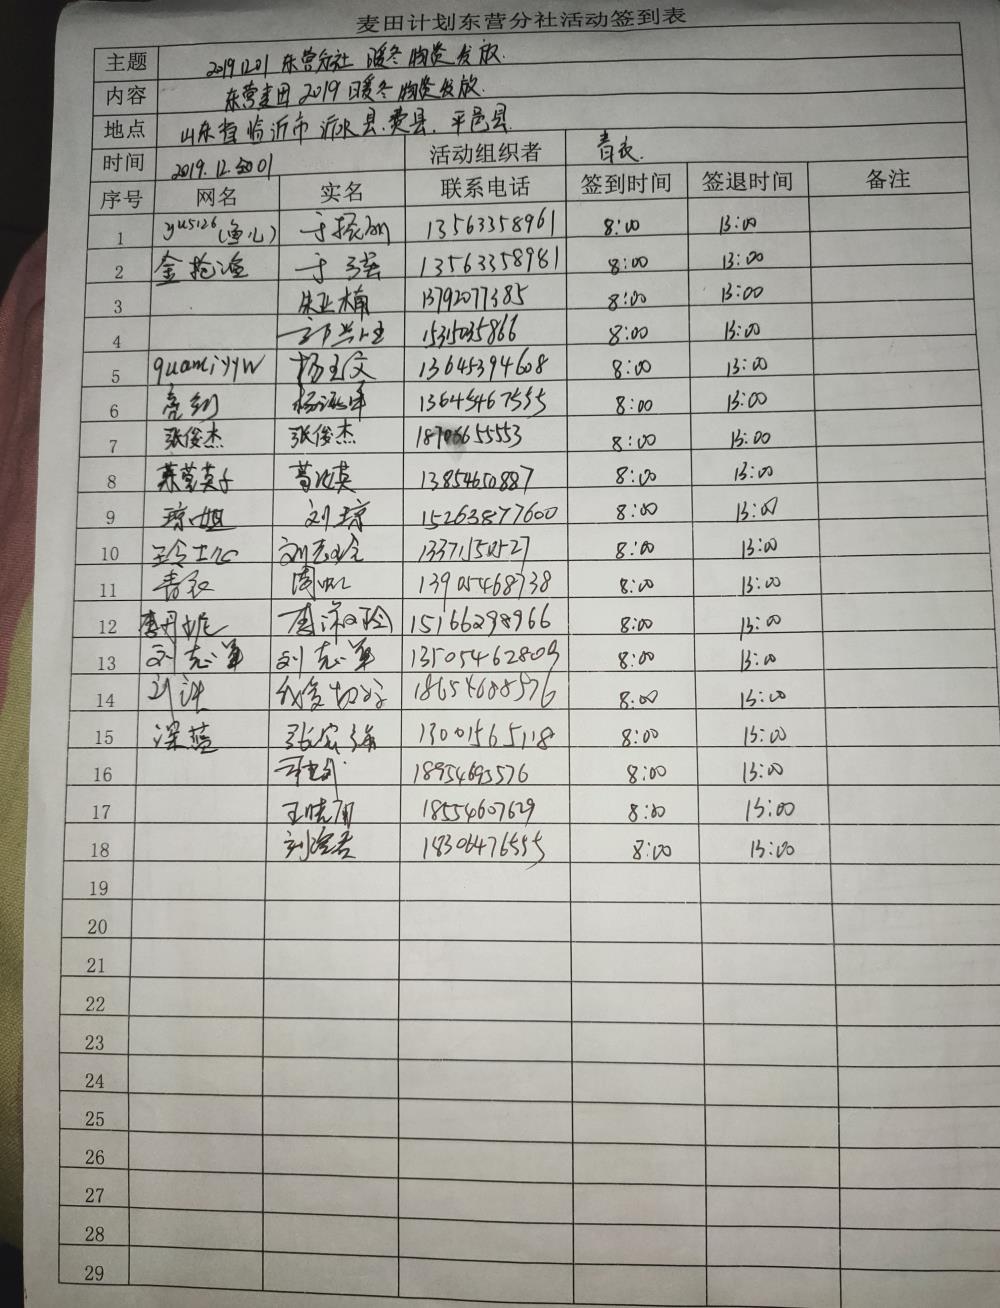 麦田计划东营分社活动签到表
主题 20191201 东营分社 暖冬物资发放.
内容 东营麦田2019暖冬物资发放.
地点 山东省临沂市沂水县.费县.平邑县
时间 2019.12.01 活动组织者 青衣.
序号 网名 实名 联系电话 签到时间 签退时间 备注
1 yus126(鱼儿) 13563358961 8:00 13:00
2 金抢渔 于强 13563358981 8:00 13:00
3 朱亚楠 13792077385 8:00 13:00
4 15315035866 8:00 13:00
5 quamiyyw 杨玉文 13645394608 8:00 13:00
6 亮剑 13645467555 8:00 13:00
7 张俊杰 张俊杰 18706655553 8:00 13:00
8 13854650887 8:00 13:00
9 琼姐 刘琼 15263877600 8:00 13:00
10 刘志玲 13371150527 8:00 13:00
11 青衣 周帆 13905468738 8:00 13:00
12 唐丹妮 15166298966 8:00 13:00
13 刘志军 刘志军 13505462809 8:00 13:00
14 18654688576 8:00 13:00
15 深蓝 张宏海 13001565118 8:00 13:00
16 18954693576 8:00 13:00
17 王晓丽 18554607629 8:00 13:00
18 18306476555 8:00 13:00
19
20
21
22
23
24
25
26
27
28
29